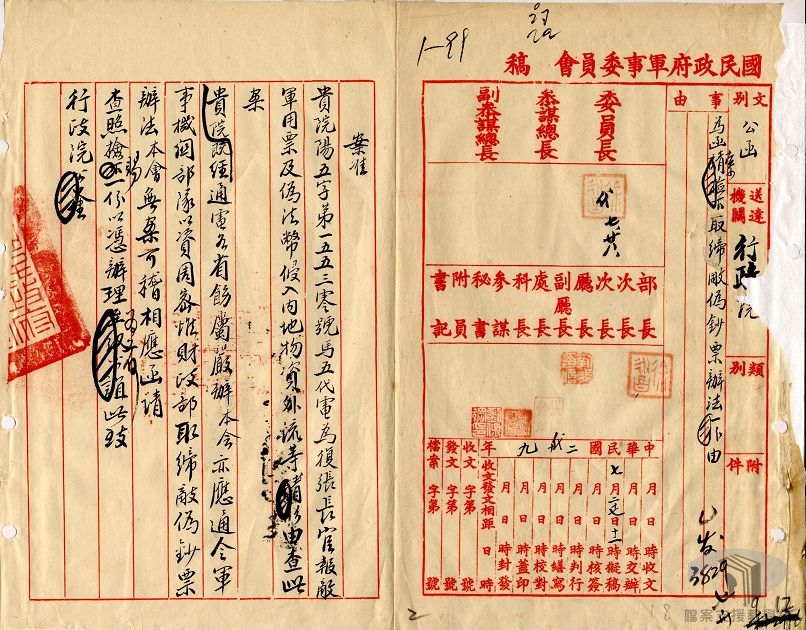 1-99
國民政府軍事委員會 稿
文別 公函
送達機關 行政院
類別
附件
事由
為函請 取締敵偽鈔票辦法 由
委員長
參謀總長
副參謀總長
代 七 廿六
部長
次長
次長
廳長
副廳長
處長
科長
參謀
秘書
附員
書記
中華民國二九年
月 日 時收文
月 日 時交辦
七月 日十一時擬稿
月 日 時核簽
月 日 時判行
月 日 時繕寫
月 日 時校對
月 日 時蓋印
月 日 時封發
收文發文相距 日 時
收文 字第 號
發文 字第 號
檔案 字第 號
3829
2
18
案准
貴院陽五字第一五五三零號馬五代電為復張長官報敵
軍用票及偽法幣侵入內地物資外流等 由查此
案
貴院既經通電各省飭屬嚴辦本會亦應通令軍
事機關部隊以資周密惟財政部取締敵偽鈔票
辦法本會無案可稽相應函請
查照檢賜一份以憑辦理 此致
行政院